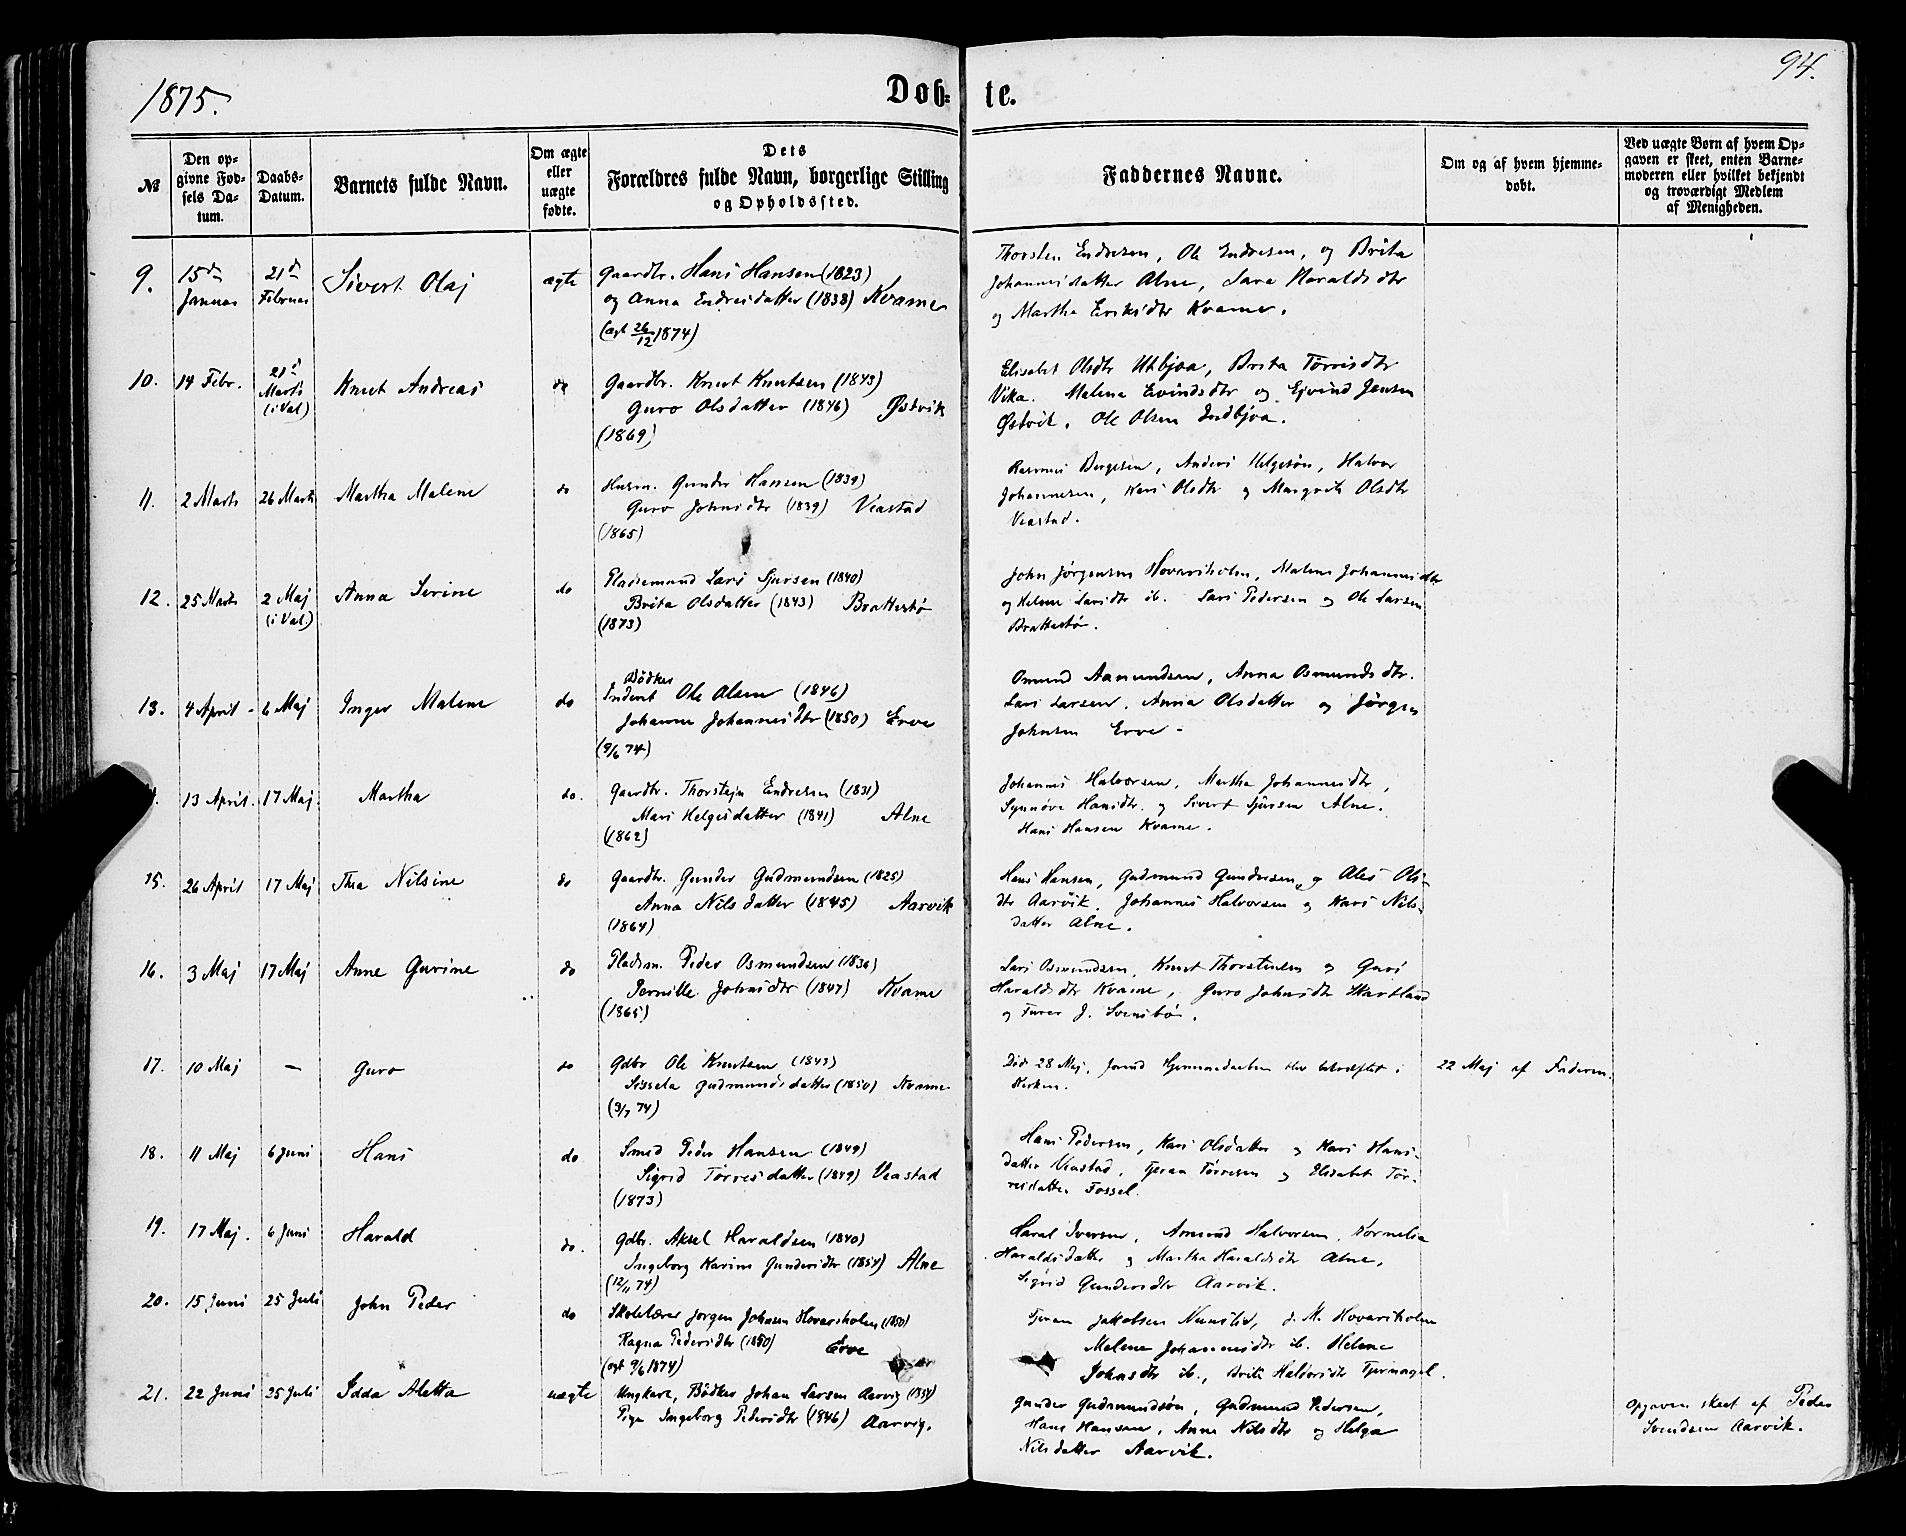 1875.
Døb-
te.
94.
№
Den op-
givne Fød-
sels Da-
tum.
Daabs-
Datum.
Barnets fulde Navn.
Om ægte
eller
uægte
fødte.
Dets
Forældres fulde Navn, borgerlige Stilling
og Opholdssted.
Faddernes Navne.
Om og af hvem hjemme-
døbt.
Ved uægte Børn af hvem Op-
gaven er skeet, enten Barne-
moderen eller hvilket bekjendt
og troværdigt Medlem
af Menigheden.
9.
15d
Januar
21d
Februar
Sivert Olaj
ægte
Gaardbr. Hans Hansen (1823)
og Anna Endresdatter (1838) Kvame
(ægt 26/12 1874)
Thorsten Endresen, Ole Endresen, og Brita
Johannesdatter Alne, Sara Haraldsdtr
og Martha Eriksdtr Kvame.
10.
14 Febr.
21d
Marts
(i Val)
Knut Andreas
do
Gaardbr. Knut Knutsen (1843)
Guro Olsdatter (1846) Østvik
(1869)
Elisabet Olsdtr Utbjoa, Brita Tørrisdtr
Vika. Malena Eivindsdtr og Ejvind Jensen
Østvik. Ole Olsen Indbjoa.
11.
2 Marts
26 Marts
Martha Malene
do
Husm. Gunder Hansen (1839)
Guro Johnsdtr (1839) Veastad
(1865)
Rasmus Børgesen, Anders Helgesøn, Halvor
Johannesen, Kari Olsdtr og Margrete Olsdtr
Veastad.
12.
25 Marts
2 Maj
(i Val.)
Anna Serine
do
Pladsemand Lars Sjursen (1840)
Brita Olsdatter (1843) Brattestø
(1873)
John Jørgensen Hovarsholm, Malene Johannesdtr
og Helene Larsdtr ib. Lars Pedersen og Ole Larsen
Brattestø.
13.
4 April
6 Maj
Inger Malene
do
Bødker
Inderst Ole Olsen (1846)
Johanne Johannesdtr (1850) Erve
(9/6 74)
Omund Aamundsen, Anna Osmundsdtr.
Lars Larsen, Anna Olsdatter og Jørgen
Johnsen Erve -
13 April.
17 Maj
Martha
do.
Gaardbr. Thorstejn Endresen (1831)
Mari Helgesdatter (1841) Alne
(1862)
Johannes Halvorsen, Martha Johannesdtr,
Synnøve Hansdtr. og Sivert Sjursen Alne.
Hans Hansen Kvame.
15.
26 April
17 Maj
Thea Nilsine
do
Gaardbr. Gunder Gudmundsen (1825)
Anna Nilsdatter (1845) Aarvik
(1864)
Hans Hansen, Gudmund Gundersen, og Ales Ols-
dtr Aarvik. Johannes Halvorsen og Kari Nils-
datter Alne.
16.
3 Maj
17 Maj
Anne Gurine
do
Pladsm. Peder Osmundsen (1836)
Pernille Johnsdtr (1847) Kvame
(1865)
Lars Osmundsen, Knut Thorstensen og Guri
Haraldsdtr Kvame, Guro Johnsdtr Skartland
og Turer J. Svensbø.
17.
10 Maj
—
Guro
do
Gdbr Ole Knutsen (1843)
Sissela Gudmundsdatter (1850) Kvame
(9/7 74)
Død 28 Maj, forend Hjemmedaaben blev bekræftet i
Kirken.
22 Maj af Faderen.
18.
11 Maj
6 Juni
Hans
do
Smed Peder Hansen (1849)
Sigrid Tørresdatter (1849) Veastad
(1873)
Hans Pedersen, Kari Olsdatter og Kari Hans-
datter Veastad, Tørres Tørresen og Elisabet Tør-
resdatter Fossel.
19.
17 Maj.
6 Juni
Harald
do.
Gdbr. Aksel Haraldsen (1840)
Ingeborg Karine Gundersdtr (1854) Alne
(12/11 74)
Haral Iversen, Amund Halvorsen, Kornelia
Haraldsdatter og Martha Haraldsdtr Alne,
Sigrid Gundersdtr Aarvik.
20.
15 Juni
25 Juli
John Peder
do
Skolelærer Jørgen Johnsen Hovarsholm (1850)
Ragna Pedersdtr (1850) Erve
(ægt 9/6 1874)
Jakobsen J. M. Hovarsholm
Malene Johannesdtr ib. Helene
Johnsdtr ib., Brita Halvorsdtr Tjernagel.
21.
22 Juni
25 Juli
Idda Aletta
uægte
Ungkarl, Bødker Johan Larsen Aarvig (1854)
Pige Ingeborg Pedersdtr (1846) Aarvig.
Gunder Gudmundsøn, Gudmund Pedersen,
Hans Hansen, Anna Nilsdtr og Helga
Nilsdatter Aarvik.
Opgaven skeet af Peder
Svendsen Aarvik.